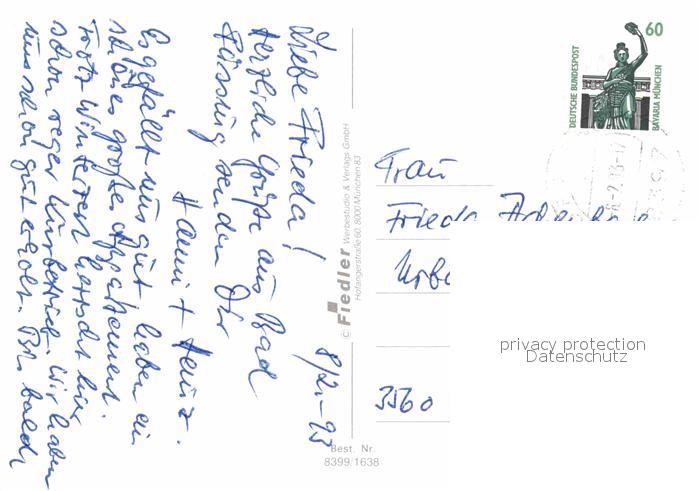 Liebe Frieda! 8/2.-93
Herzliche Grüße aus Bad
Füssing senden Dir
Hanni + Heinz.
Es gefällt uns gut haben ein
schönes großes Appartement.
Trotz Winterzeit herrscht hier
schon reger Kurbetrieb. Wir haben
uns schon gut erholt. Bis bald,
© Fiedler Werbestudio & Verlags GmbH
Hofangerstraße 60, 8000 München 83
Best. Nr.
8399/1638
60
DEUTSCHE BUNDESPOST
BAVARIA MÜNCHEN
Frau
Frieda
3560
privacy protection
Datenschutz